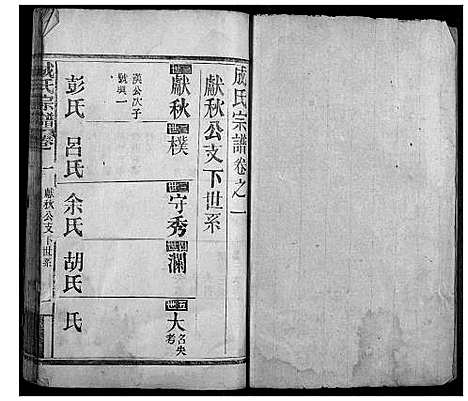 成氏宗譜卷之一
獻秋公支下世系
一世 獻秋 二世 樸 三世 守秀 四世 瀾 五世 大 名失考
漢公次子
號興一
彭氏 呂氏 余氏 胡氏 氏
成氏宗譜 卷一 獻秋公支下世系 一